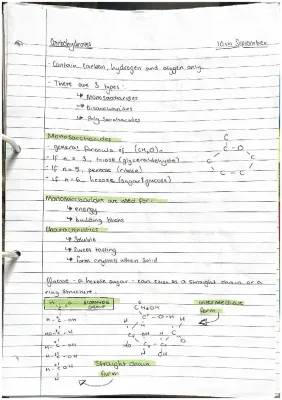 Carbohydrates 10th September
- Contain Carbon, hydrogen and oxygen only.
- There are 3 types:
↳ Monosaccharides
↳ Disaccharides
↳ Polysaccharides
Monosaccharides
- general formula of (CH₂O)n
- If n = 3, triose (glyceraldehyde)
- If n = 5, pentose (ribose)
- If n = 6, hexose (sugar/glucose)
Monosaccharides are used for:
↳ energy
↳ building blocks
Characteristics
↳ Soluble
↳ Sweet tasting
↳ form crystals when solid
Glucose - a hexose sugar - can exist as a straight chain or a
ring structure.
CH₂OH
intermediate
form
Straight chain
form